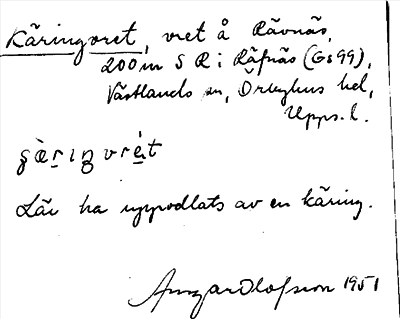 Käringvret, vret å Rävnäs,
200 m S R i Räfnäs (Gs 99),
Västlands sn, Örbyhus hd,
Upps. l.
Lär ha uppodlats av en käring.
Ansgar Olofsson 1951